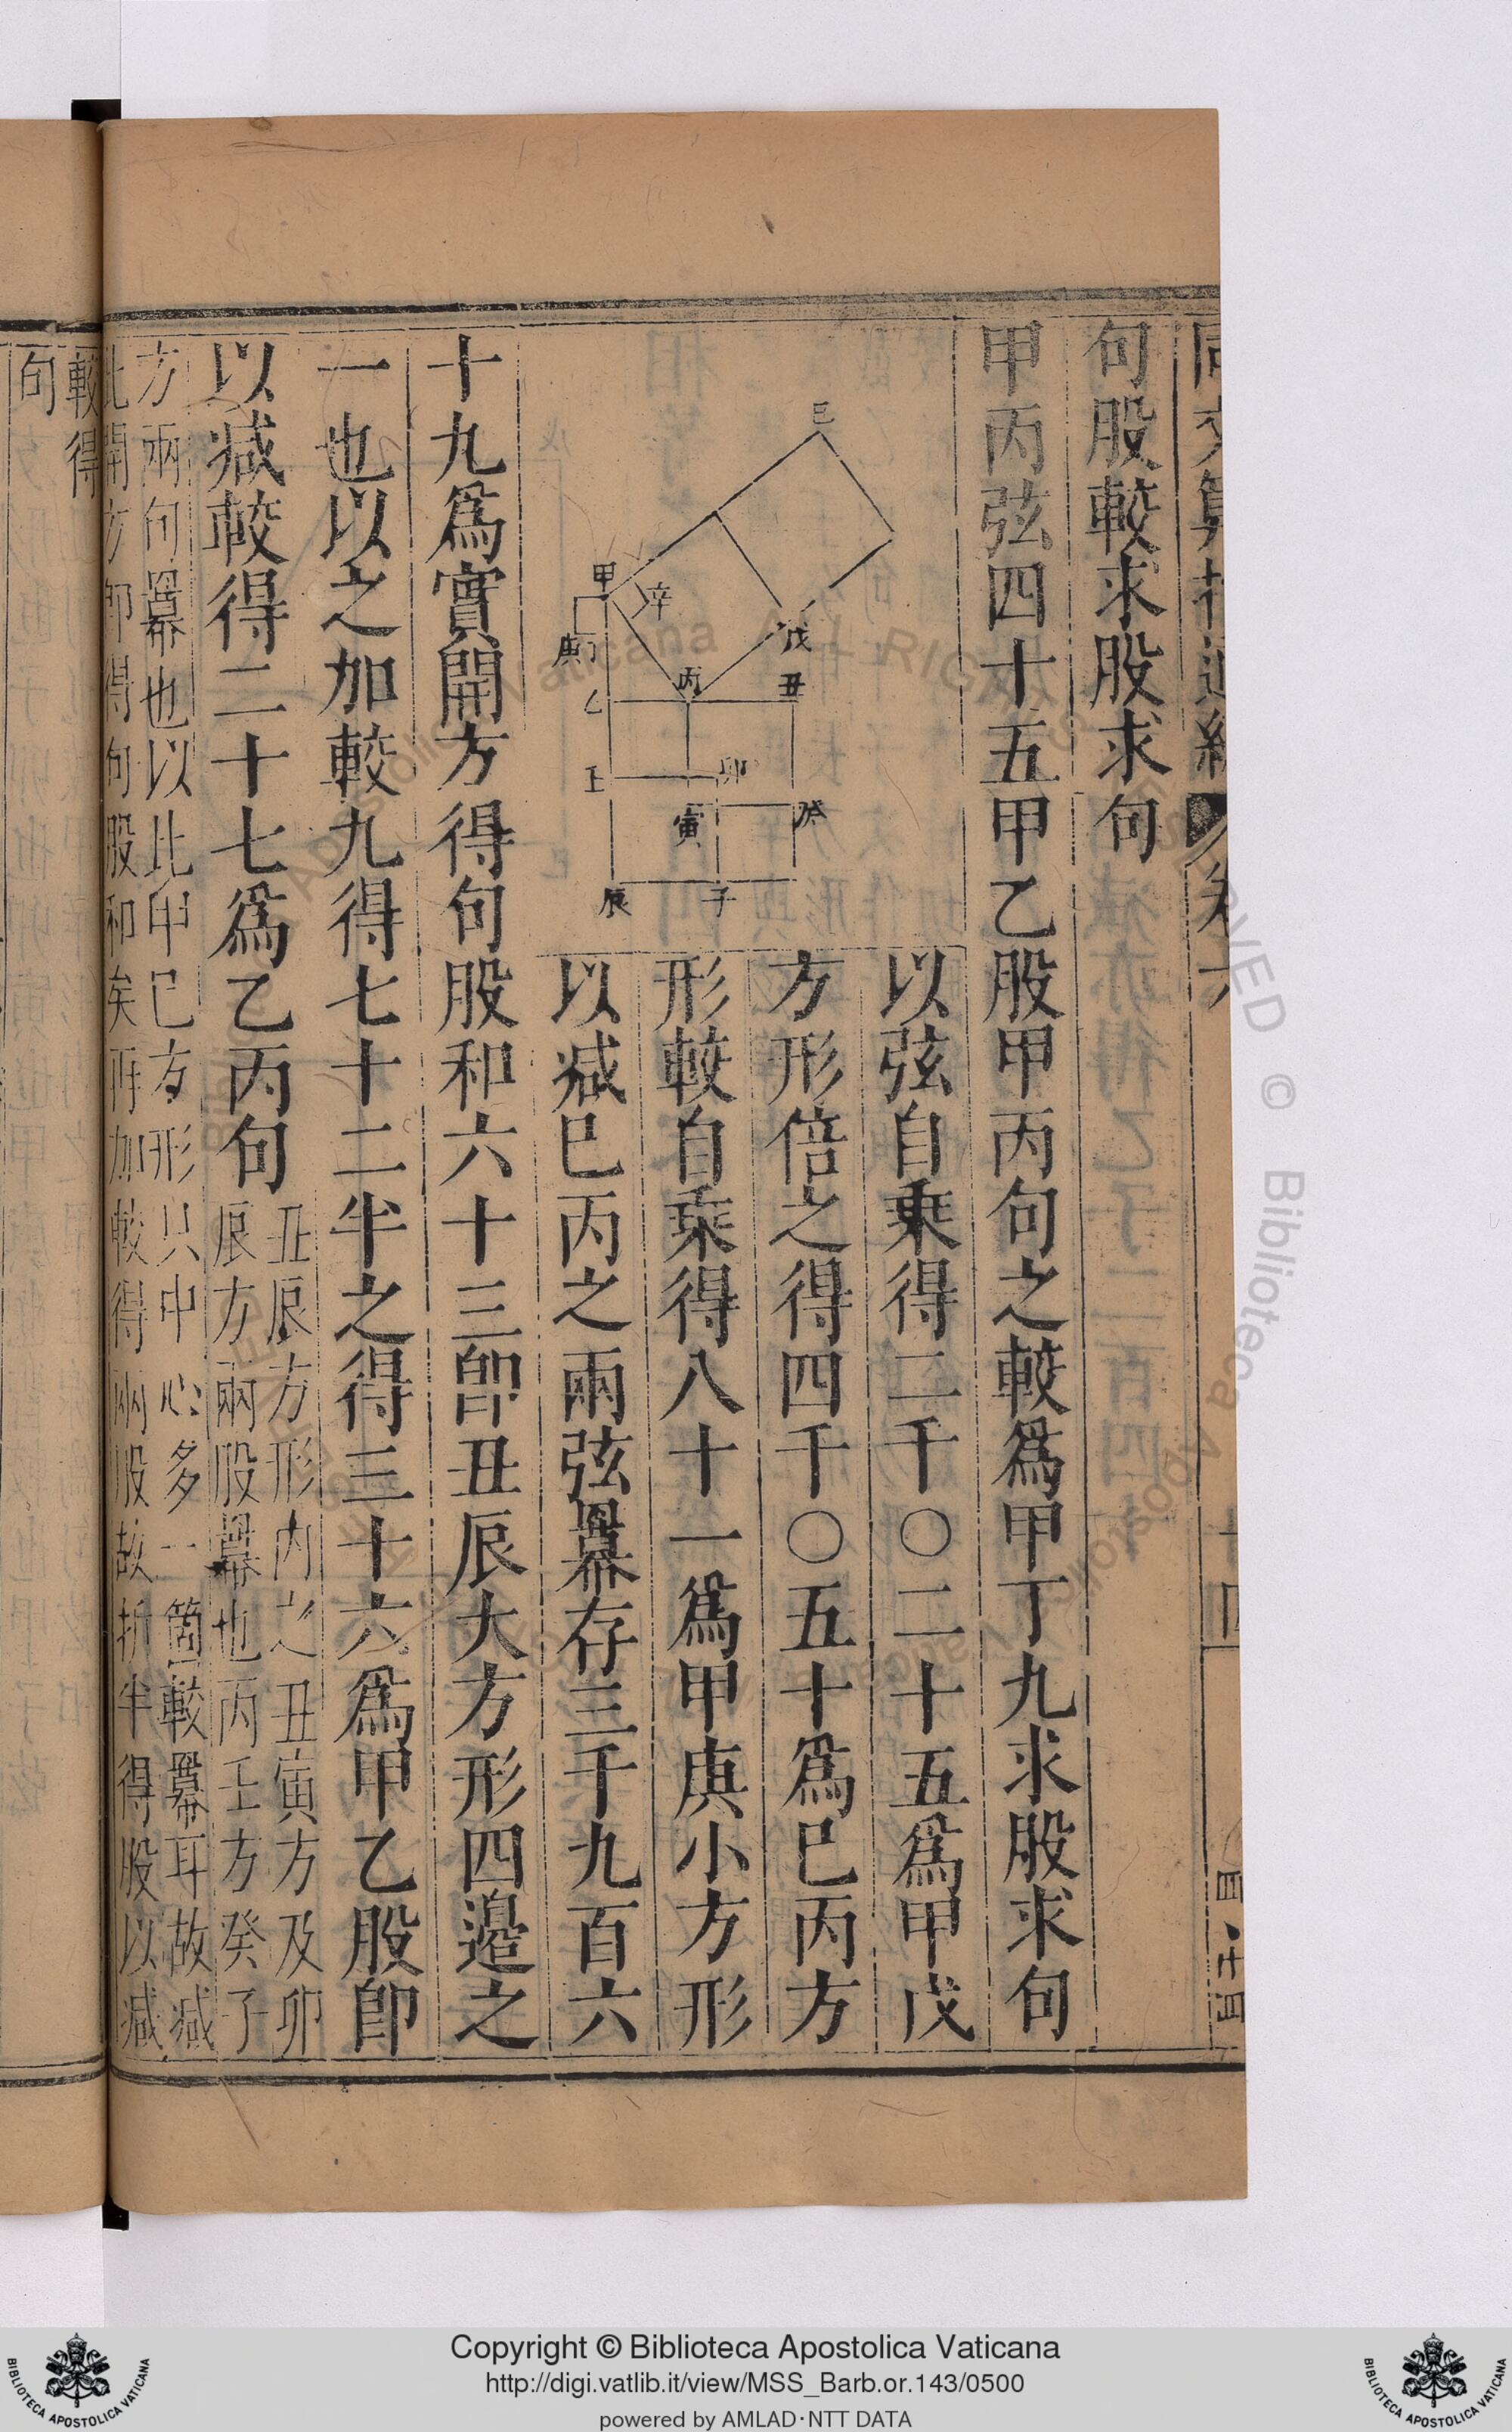 句股較求股求句
甲丙弦四十五甲乙股甲丙句之較爲甲丁九求股求句
巳
甲
辛
戊
庚
丁
丙
丑
乙
壬
卯
寅
癸
辰
子
以弦自乘得二千〇二十五爲甲戊
方形倍之得四千〇五十爲巳丙方
形較自乘得八十一爲甲庚小方形
以减巳丙之兩弦羃存三千九百六
十九爲實開方得句股和六十三卽丑辰大方形四邉之
一也以之加較九得七十二半之得三十六爲甲乙股卽
以减較得二十七爲乙丙句
丑辰方形内之丑寅方及卯
辰方兩股羃也丙壬方癸子
方兩句羃也以此甲巳方形只中心多一箇較羃耳故减
此開方卽得句股和矣再加較得兩股故折半得股以减
較得
句
Copyright © Biblioteca Apostolica Vaticana
http://digi.vatlib.it/view/MSS_Barb.or.143/0500
powered by AMLAD·NTT DATA
BIBLIOTECA APOSTOLICA VATICANA
BIBLIOTECA APOSTOLICA VATICANA